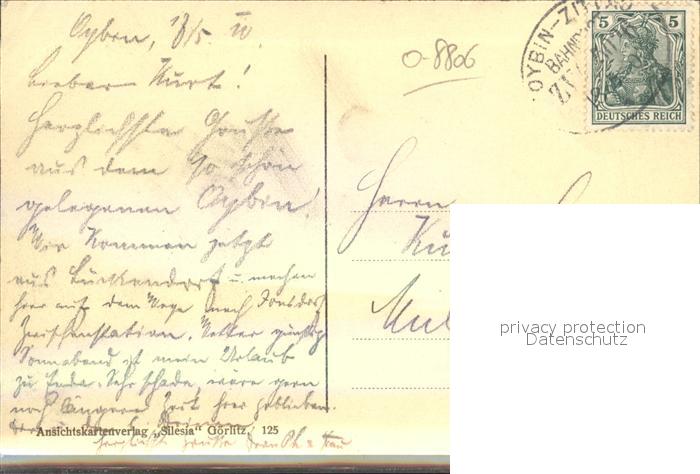 Oybin, 13/5. 10.
Lieber Kurt!
Herzlichste Grüsse
aus dem so schön
gelegenen Oybin!
Wir kommen jetzt
aus Lückendorf u. machen
hier auf dem Wege nach Jonsdorf
Zwischenstation. Wetter günstig
Sonnabend ist mein Urlaub
zu Ende. Sehr schade, wäre gern
noch längere Zeit hier geblieben.
Ansichtskartenverlag „Silesia“ Görlitz. 125
Herzlich Grüsse
0-8806
OYBIN-ZITTAU
BAHNPOST
5 5
DEUTSCHES REICH
Herrn
privacy protection
Datenschutz